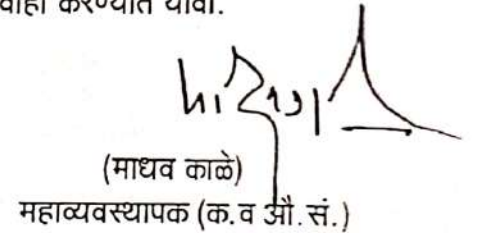 करण्यात यावी.
(माधव काळे)
महाव्यवस्थापक (क.व औ.सं.)